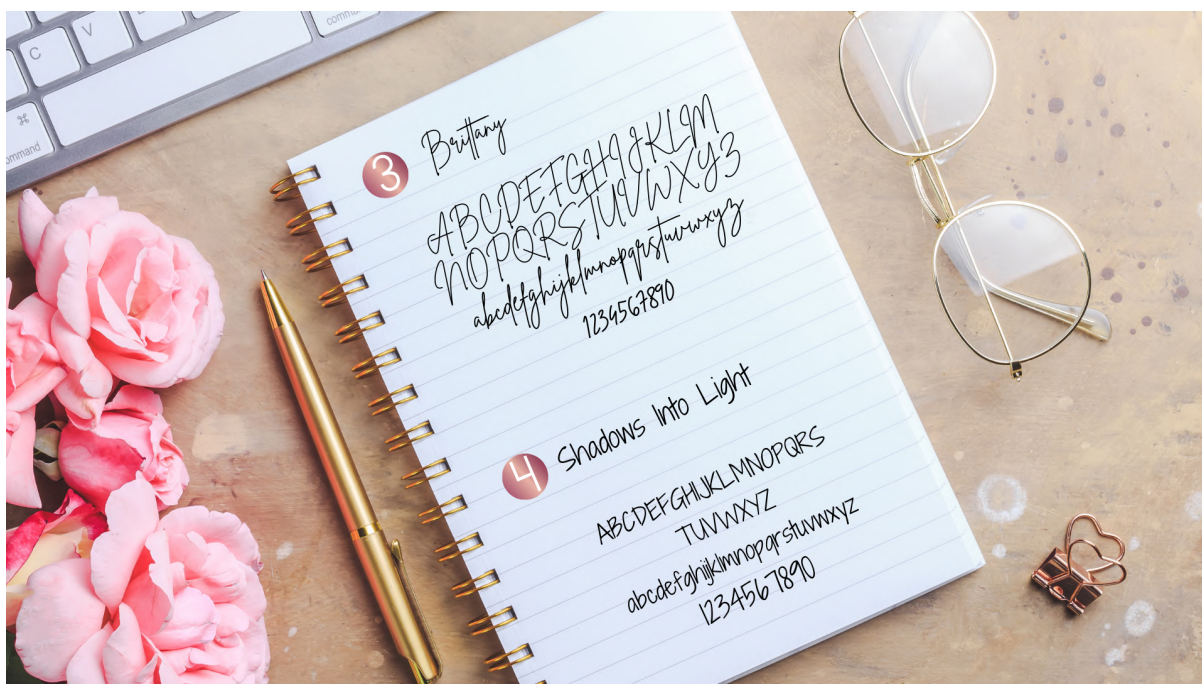 C
V
⌘
command
3
Brittany
ABCDEFGHIJKLM
NOPQRSTUVWXYZ
abcdefghijklmnopqrstuvwxyz
1234567890
4
Shadows Into Light
ABCDEFGHIJKLMNOPQRS
TUVWXYZ
abcdefghijklmnopqrstuvwxyz
1234567890